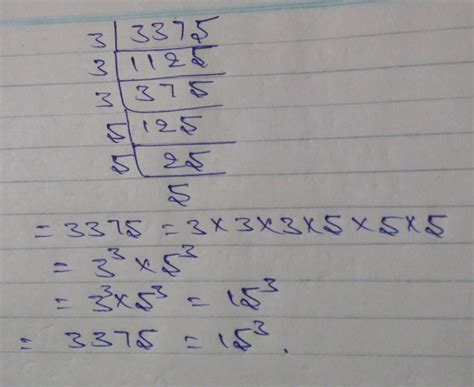 3 | 3375
3 | 1125
3 | 375
5 | 125
5 | 25
5
= 3375 = 3×3×3×5×5×5
= 3³×5³
= 3³×5³ = 15³
= 3375 = 15³.